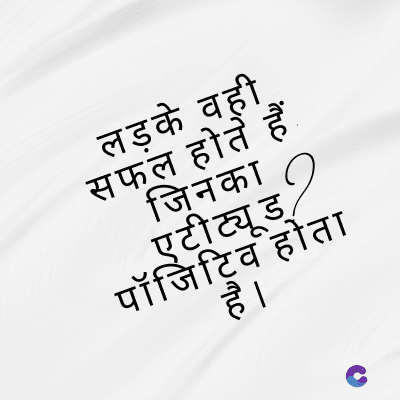 लड़के वही
सफल होते हैं
जिनका ?
एटीट्यूड
पॉजिटिव होता
है।